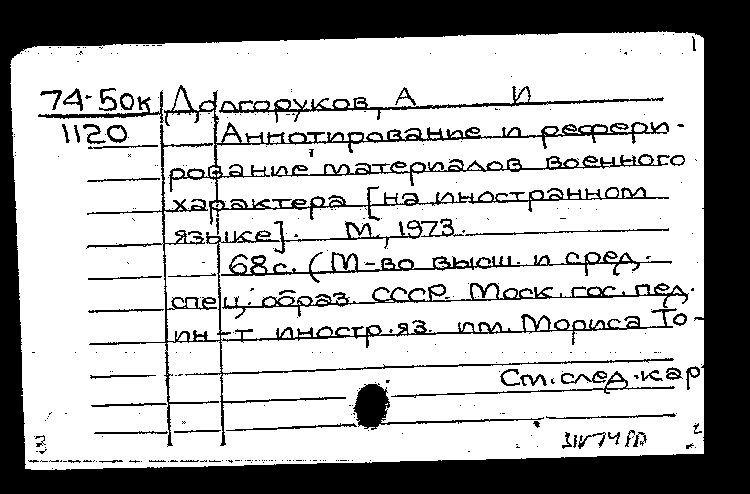 74-50к Долгоруков, А И
1120 Аннотирование и рефери-
рование материалов военного
характера [на иностранном
языке]. М., 1973.
68с. (М-во высш. и сред.
спец. образ. СССР. Моск. гос. пед.
ин-т иностр. яз. им. Мориса То-
См. след. кар
3